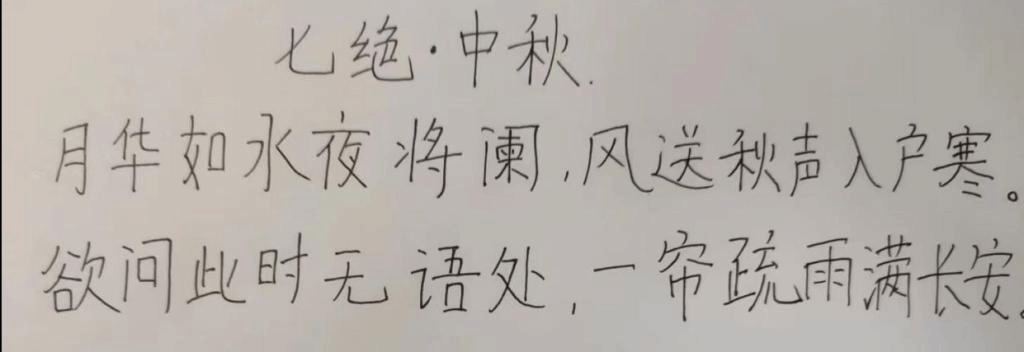 七绝·中秋.
月华如水夜将阑,风送秋声入户寒。
欲问此时无语处,一帘疏雨满长安。